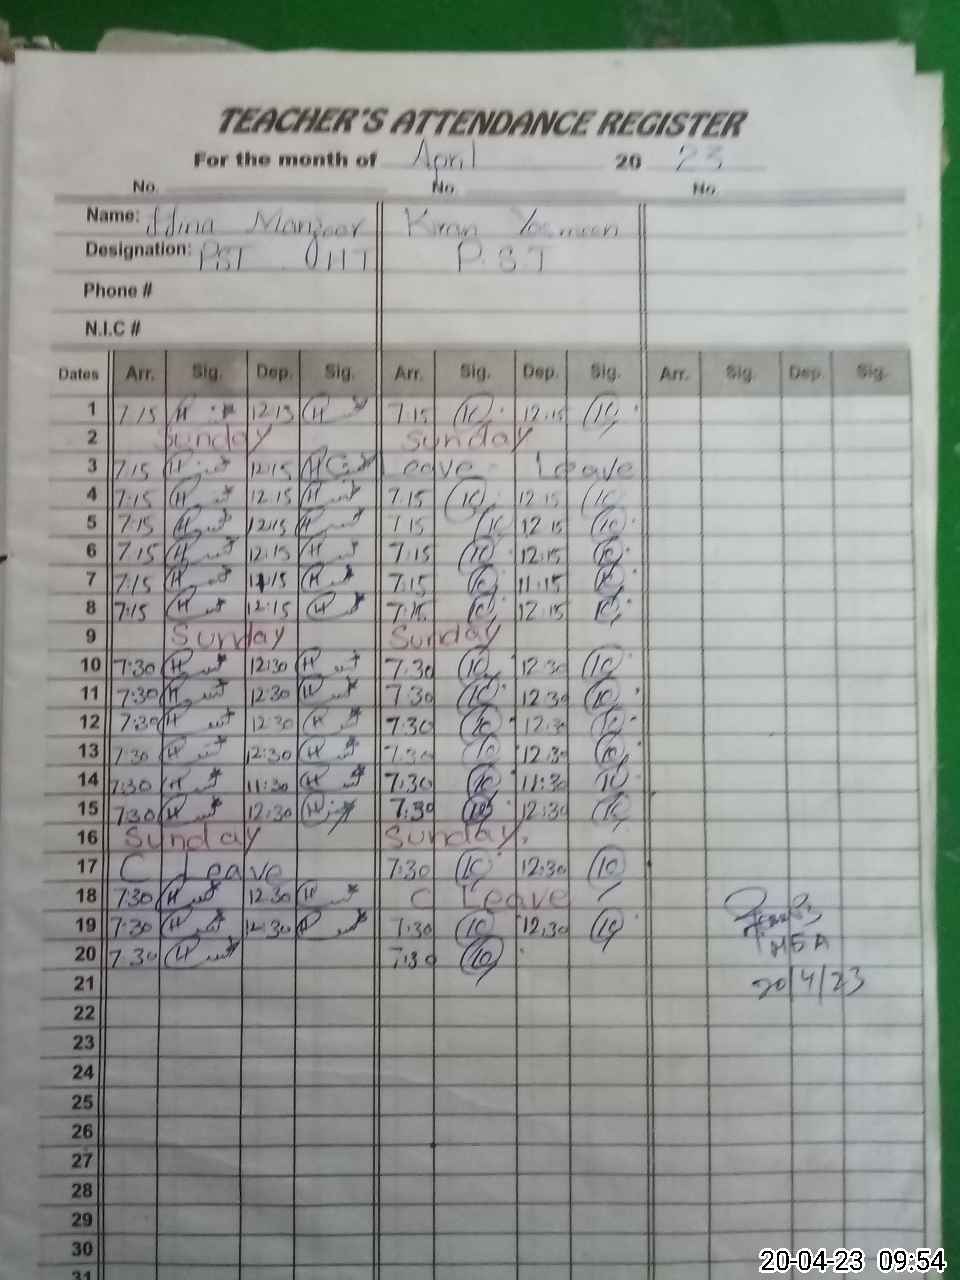 TEACHER'S ATTENDANCE REGISTER
For the month of April 20 23
No. No. No.
Name: Hina Manzoor Kiran Yasmeen
Designation: PST P.S.T
Phone #
N.I.C #
Dates Arr. Sig. Dep. Sig. Arr. Sig. Dep. Sig. Arr. Sig. Dep. Sig.
1 7.15 12.15 7.15 12.15
2 Sunday Sunday
3 7.15 12.15 Leave Leave
4 7:15 12.15 7.15 12.15
5 7:15 12:15 7.15 12 15
6 7.15 12:15 7:15 12:15
7 7:15 11:15 7:15 11:15
8 7:15 12:15 7:15 12.15
9 Sunday Sunday
10 7:30 12:30 7.30 12.30
11 7:30 12:30 7:30 12:30
12 7:30 12:30 7:30 12:30
13 7:30 12:30 7:30 12:30
14 7:30 11:30 7:30 11:30
15 7:30 12:30 7:30 12:30
16 Sunday Sunday.
17 C Leave 7:30 12:30
18 7:30 12:30 C Leave
19 7:30 12:30 7:30 12:30
20 7:30 7:30
21 20/4/23
22
23
24
25
26
27
28
29
30
31
20-04-23 09:54